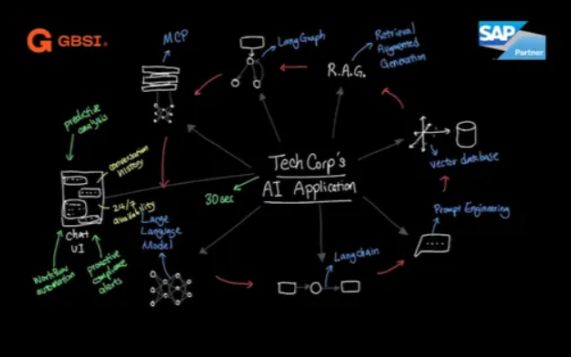 GBSI.
SAP
Partner
MCP
LangGraph
R.A.G.
Retrieval
Augmented
Generation
predictive
analysis
conversation
history
24/7
availability
Chat
UI
Workflow
automation
proactive
compliance
alerts
30sec
Tech Corp's
AI Application
vector database
Prompt Engineering
Langchain
Large
Language
Model